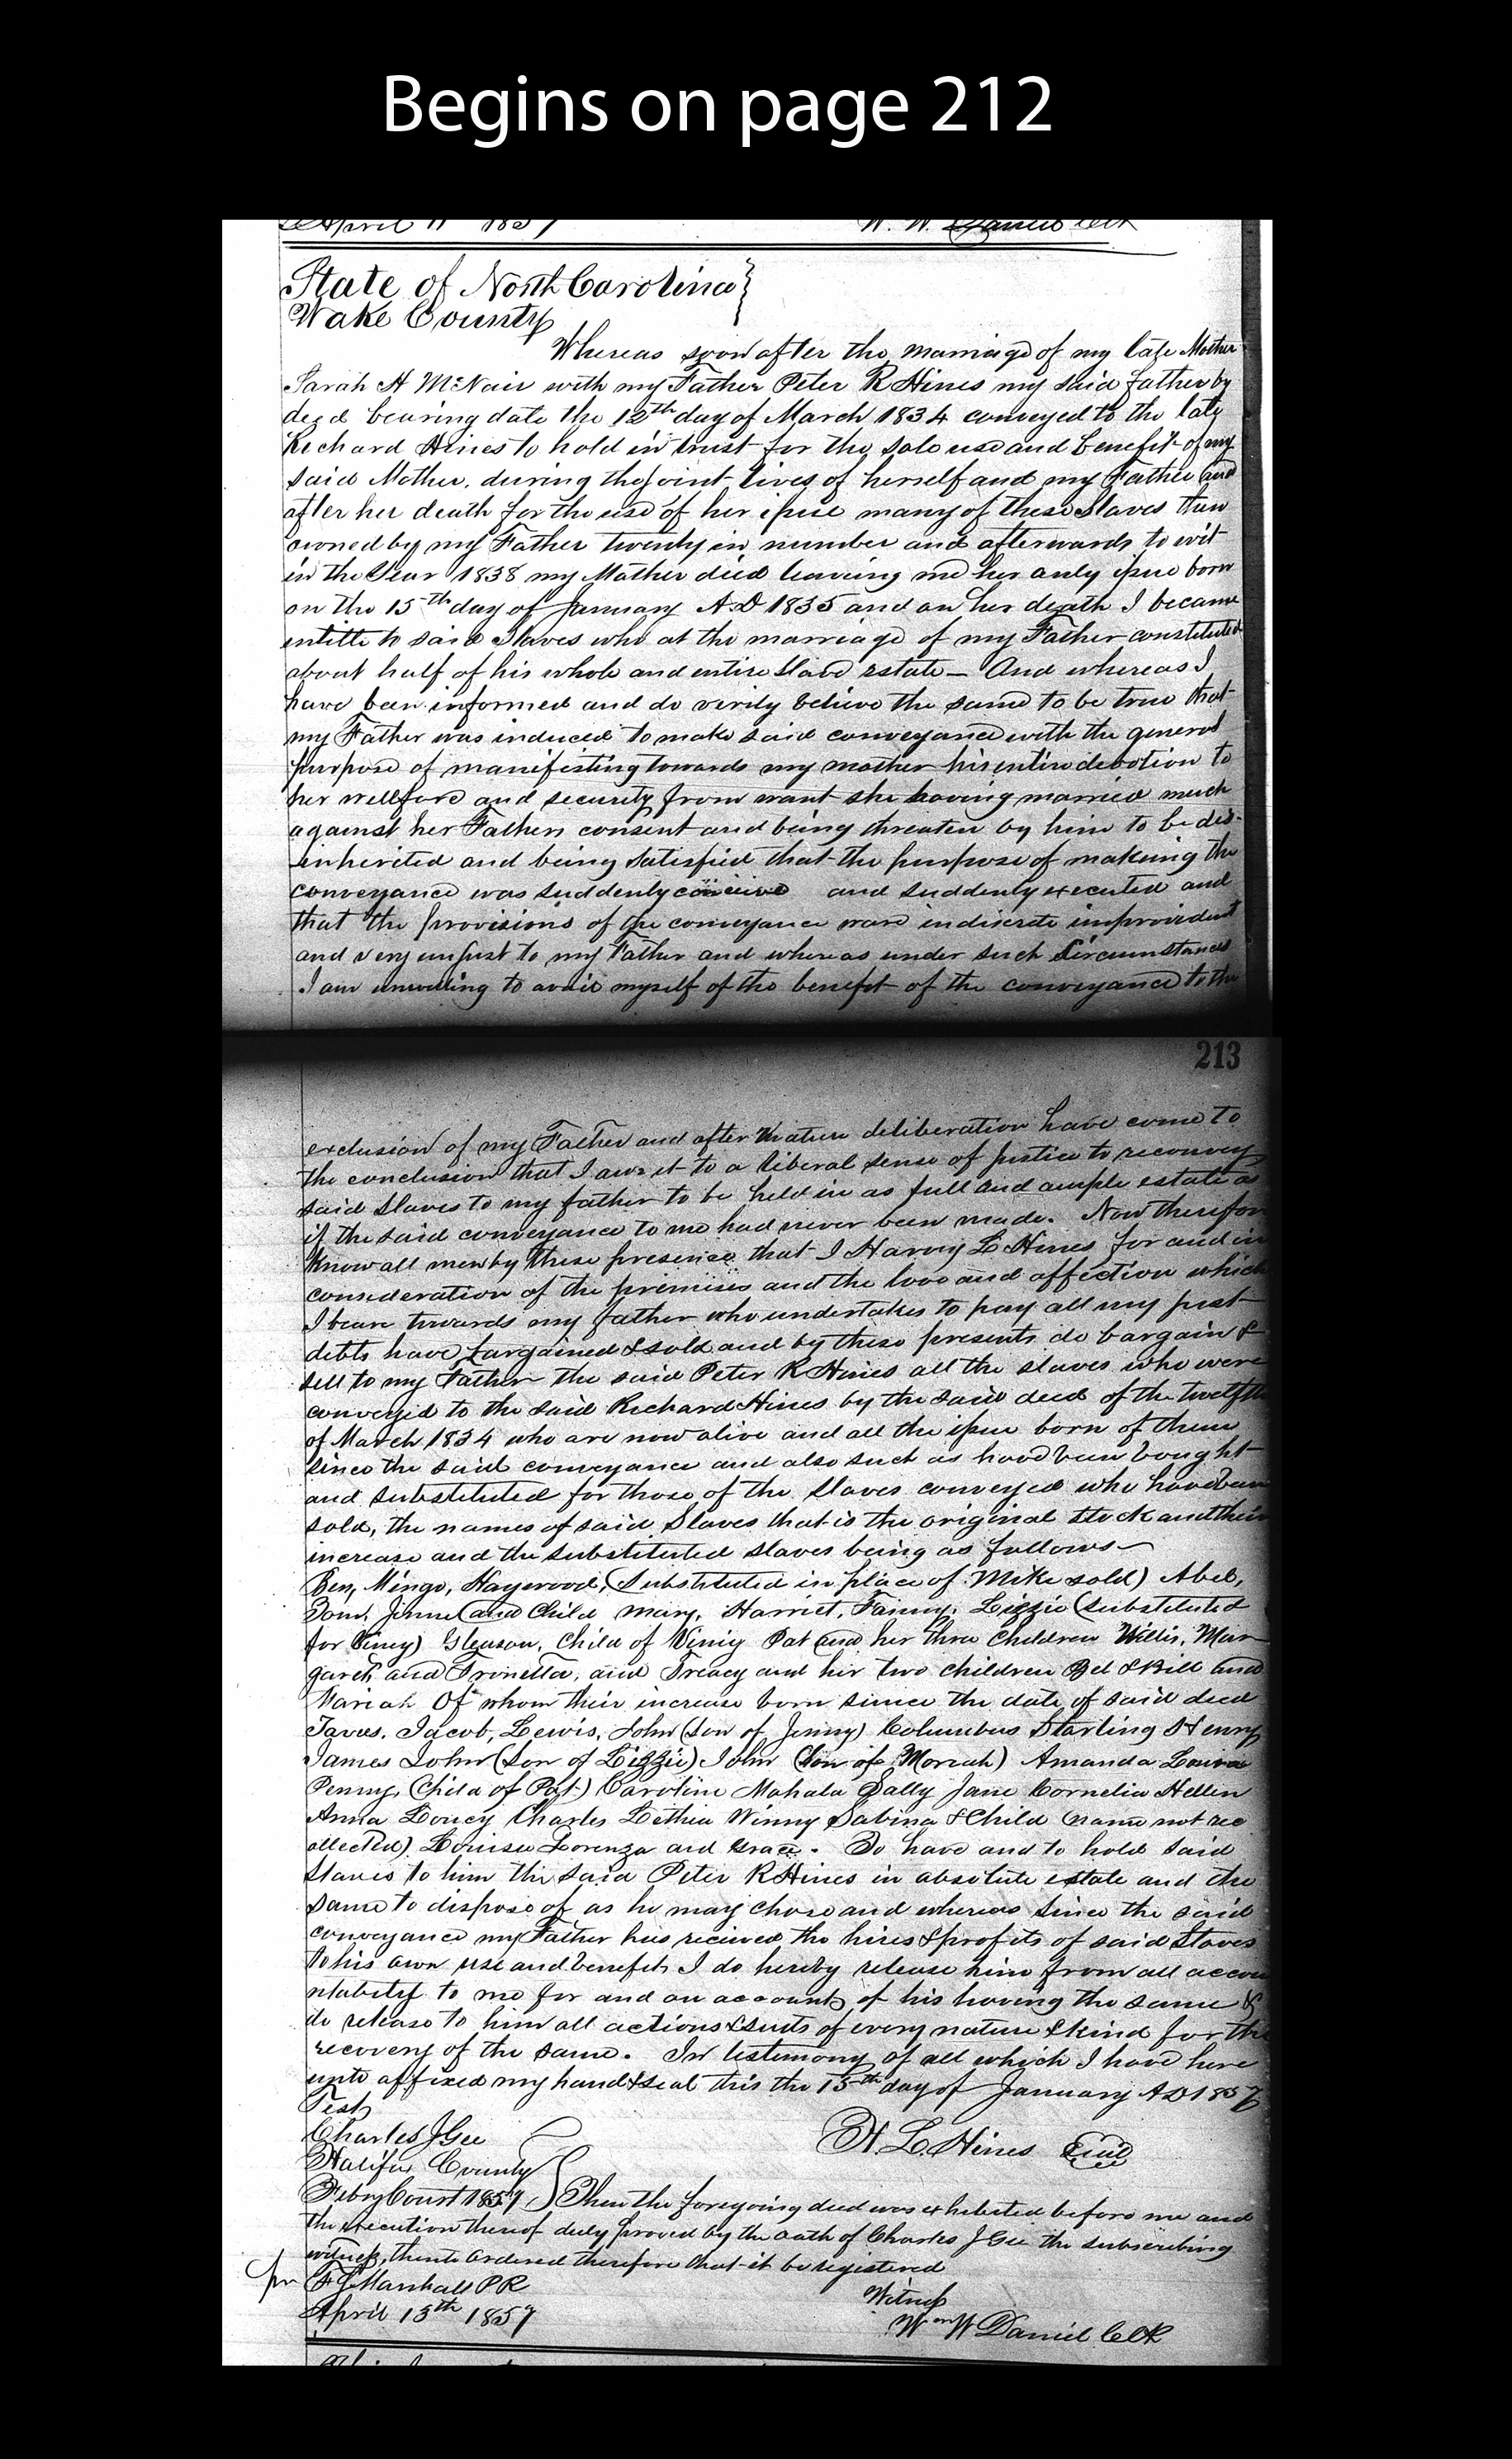 Begins on page 212
April 11 1857 W. W. Daniel Clk
State of North Carolina
Wake County
Whereas soon after the marriage of my late Mother
Sarah H McNair with my Father Peter R Hines my said father by
deed bearing date the 12th day of March 1834 conveyed to the late
Richard Hines to hold in trust for the sole use and benefit of my
said Mother, during the joint lives of herself and my Father and
after her death for the use of her issue many of these Slaves then
owned by my Father twenty in number and afterwards to wit
in the Year 1838 my Mother died leaving me her only issue born
on the 15th day of January A.D 1835 and on her death I became
entitle to said Slaves who at the marriage of my Father constituted
about half of his whole and entire slave estate – And whereas I
have been informed and do verily believe the same to be true that
my Father was induced to make said conveyance with the general
purpose of manifesting towards my mother his entire devotion to
her wellfare and security from want she having married much
against her Fathers consent and being threaten by him to be dis-
inherited and being satisfied that the purpose of making the
conveyance was suddenly and suddenly executed and
that the provisions of the conveyance ware indiscrete improvident
and very unjust to my Father and whereas under such Circumstances
I am unwilling to avail myself of the benefit of the conveyance to the
213
exclusion of my Father and after mature deliberation have come to
the conclusion that I awe it to a liberal sense of justice to reconvey
said Slaves to my father to be held in as full and ample estate as
if the said conveyance to me had never been made. Now therefore
Know all men by these presence that I Harvy L Hines for and in
consideration of the premises and the love and affection which
I beare towards my father who undertakes to pay all my just
debts have bargained & sold and by these presents do bargain &
sell to my Father the said Peter R Hines all the slaves who were
conveyed to the said Richard Hines by the said deed of the twelfth
of March 1834 who are now alive and all the issue born of them
since the said conveyance and also such as have been bought
and substituted for those of the Slaves conveyed who have been
sold, the names of said Slaves that is the original stock and their
increase and the substituted slaves being as follows–
Ben, Mingo, Haywood, (Substituted in place of Mike sold) Abel,
Tom, Jinne and Child Mary, Harriet, Fanny, Lizzie (substituted
for Viney) Gleason, Child of Viniy Pat and her thre Children Willis, Mar
garet and Fronetta, and Treacy and his two children & Bill and
Mariah Of whom their increase born since the date of said deed
Jacob, Lewis, John (Son of Jenny) Columbus Starling Henry
James John (Son of Lizzie) John (Son of Moriah) Amanda Louisa
Penny, (Child of Pat) Caroline Mahala Sally Jane Cornelia Hellen
Anna Loucy Charles Lethia Winny Sabina & Child (name not rec
ollected) Louisa Lorenza and Grace. To have and to hold said
Slaves to him the said Peter R Hines in absolute estate and the
same to dispose of as he may chose and whereas since the said
conveyance my Father has recieved the hires & profits of said Slaves
to his own use and benefit I do hereby release him from all accou
ntabilety to me for and on account of his having the same &
do release to him all actions & suits of every nature & kind for the
recovery of the same. In testimony of all which I have here
unto affixed my hand & seal this the 15th day of January AD 1857
Test
Charles J Gee H. L. Hines Seal
Halifax County
Feby Court 1857 Then the foregoing deed was exhebited before me and
the execution thereof duly proved by the oath of Charles J Gee the subscribing
witness, thereto Ordered therefore that it be registered
Marshall PR Witness
April 13th 1857 Wm W Daniel Clk